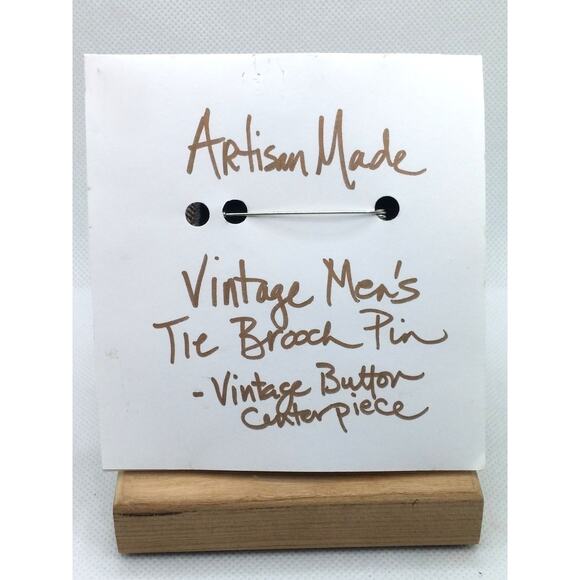 Artisan Made
Vintage Men's
Tie Brooch Pin
- Vintage Button
Centerpiece